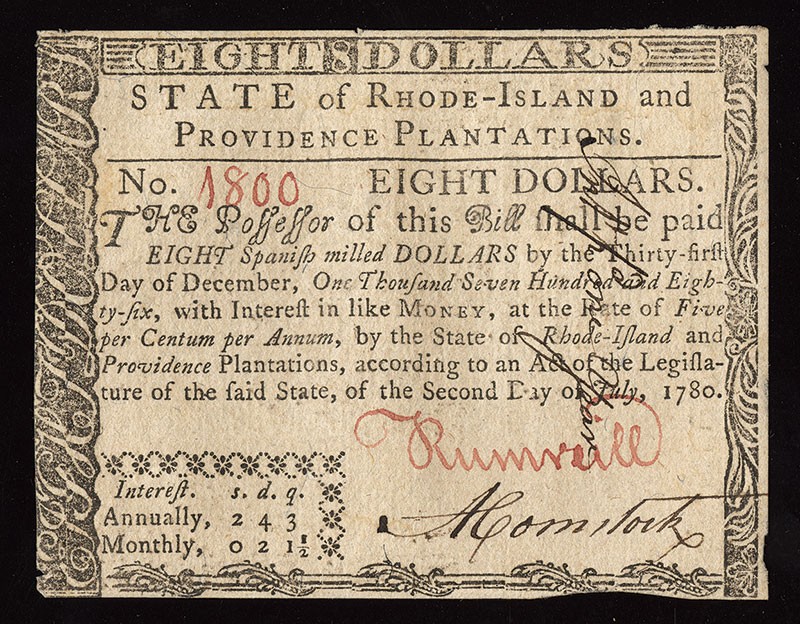 EIGHT 8 DOLLARS
STATE of RHODE-ISLAND and
PROVIDENCE PLANTATIONS.
No. 1800 EIGHT DOLLARS.
THE Poſſeſſor of this Bill ſhall be paid
EIGHT Spaniſh milled DOLLARS by the Thirty-firſt
Day of December, One Thouſand Seven Hundred and Eigh-
ty-ſix, with Intereſt in like MONEY, at the Rate of Five
per Centum per Annum, by the State of Rhode-Iſland and
Providence Plantations, according to an Act of the Legiſla-
ture of the ſaid State, of the Second Day of July, 1780.
Rumreill
Intereſt. s. d. q.
Annually, 2 4 3
Monthly, 0 2 1½
AComstock